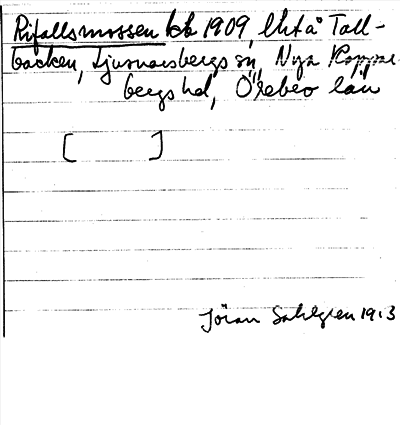 Rifallsmossen kbl 1909, Uht å Tall-
backen, Ljusnarsbergs sn, Nya Koppar-
bergs hd, Örebro län
[ ]
Jöran Sahlgren 1913